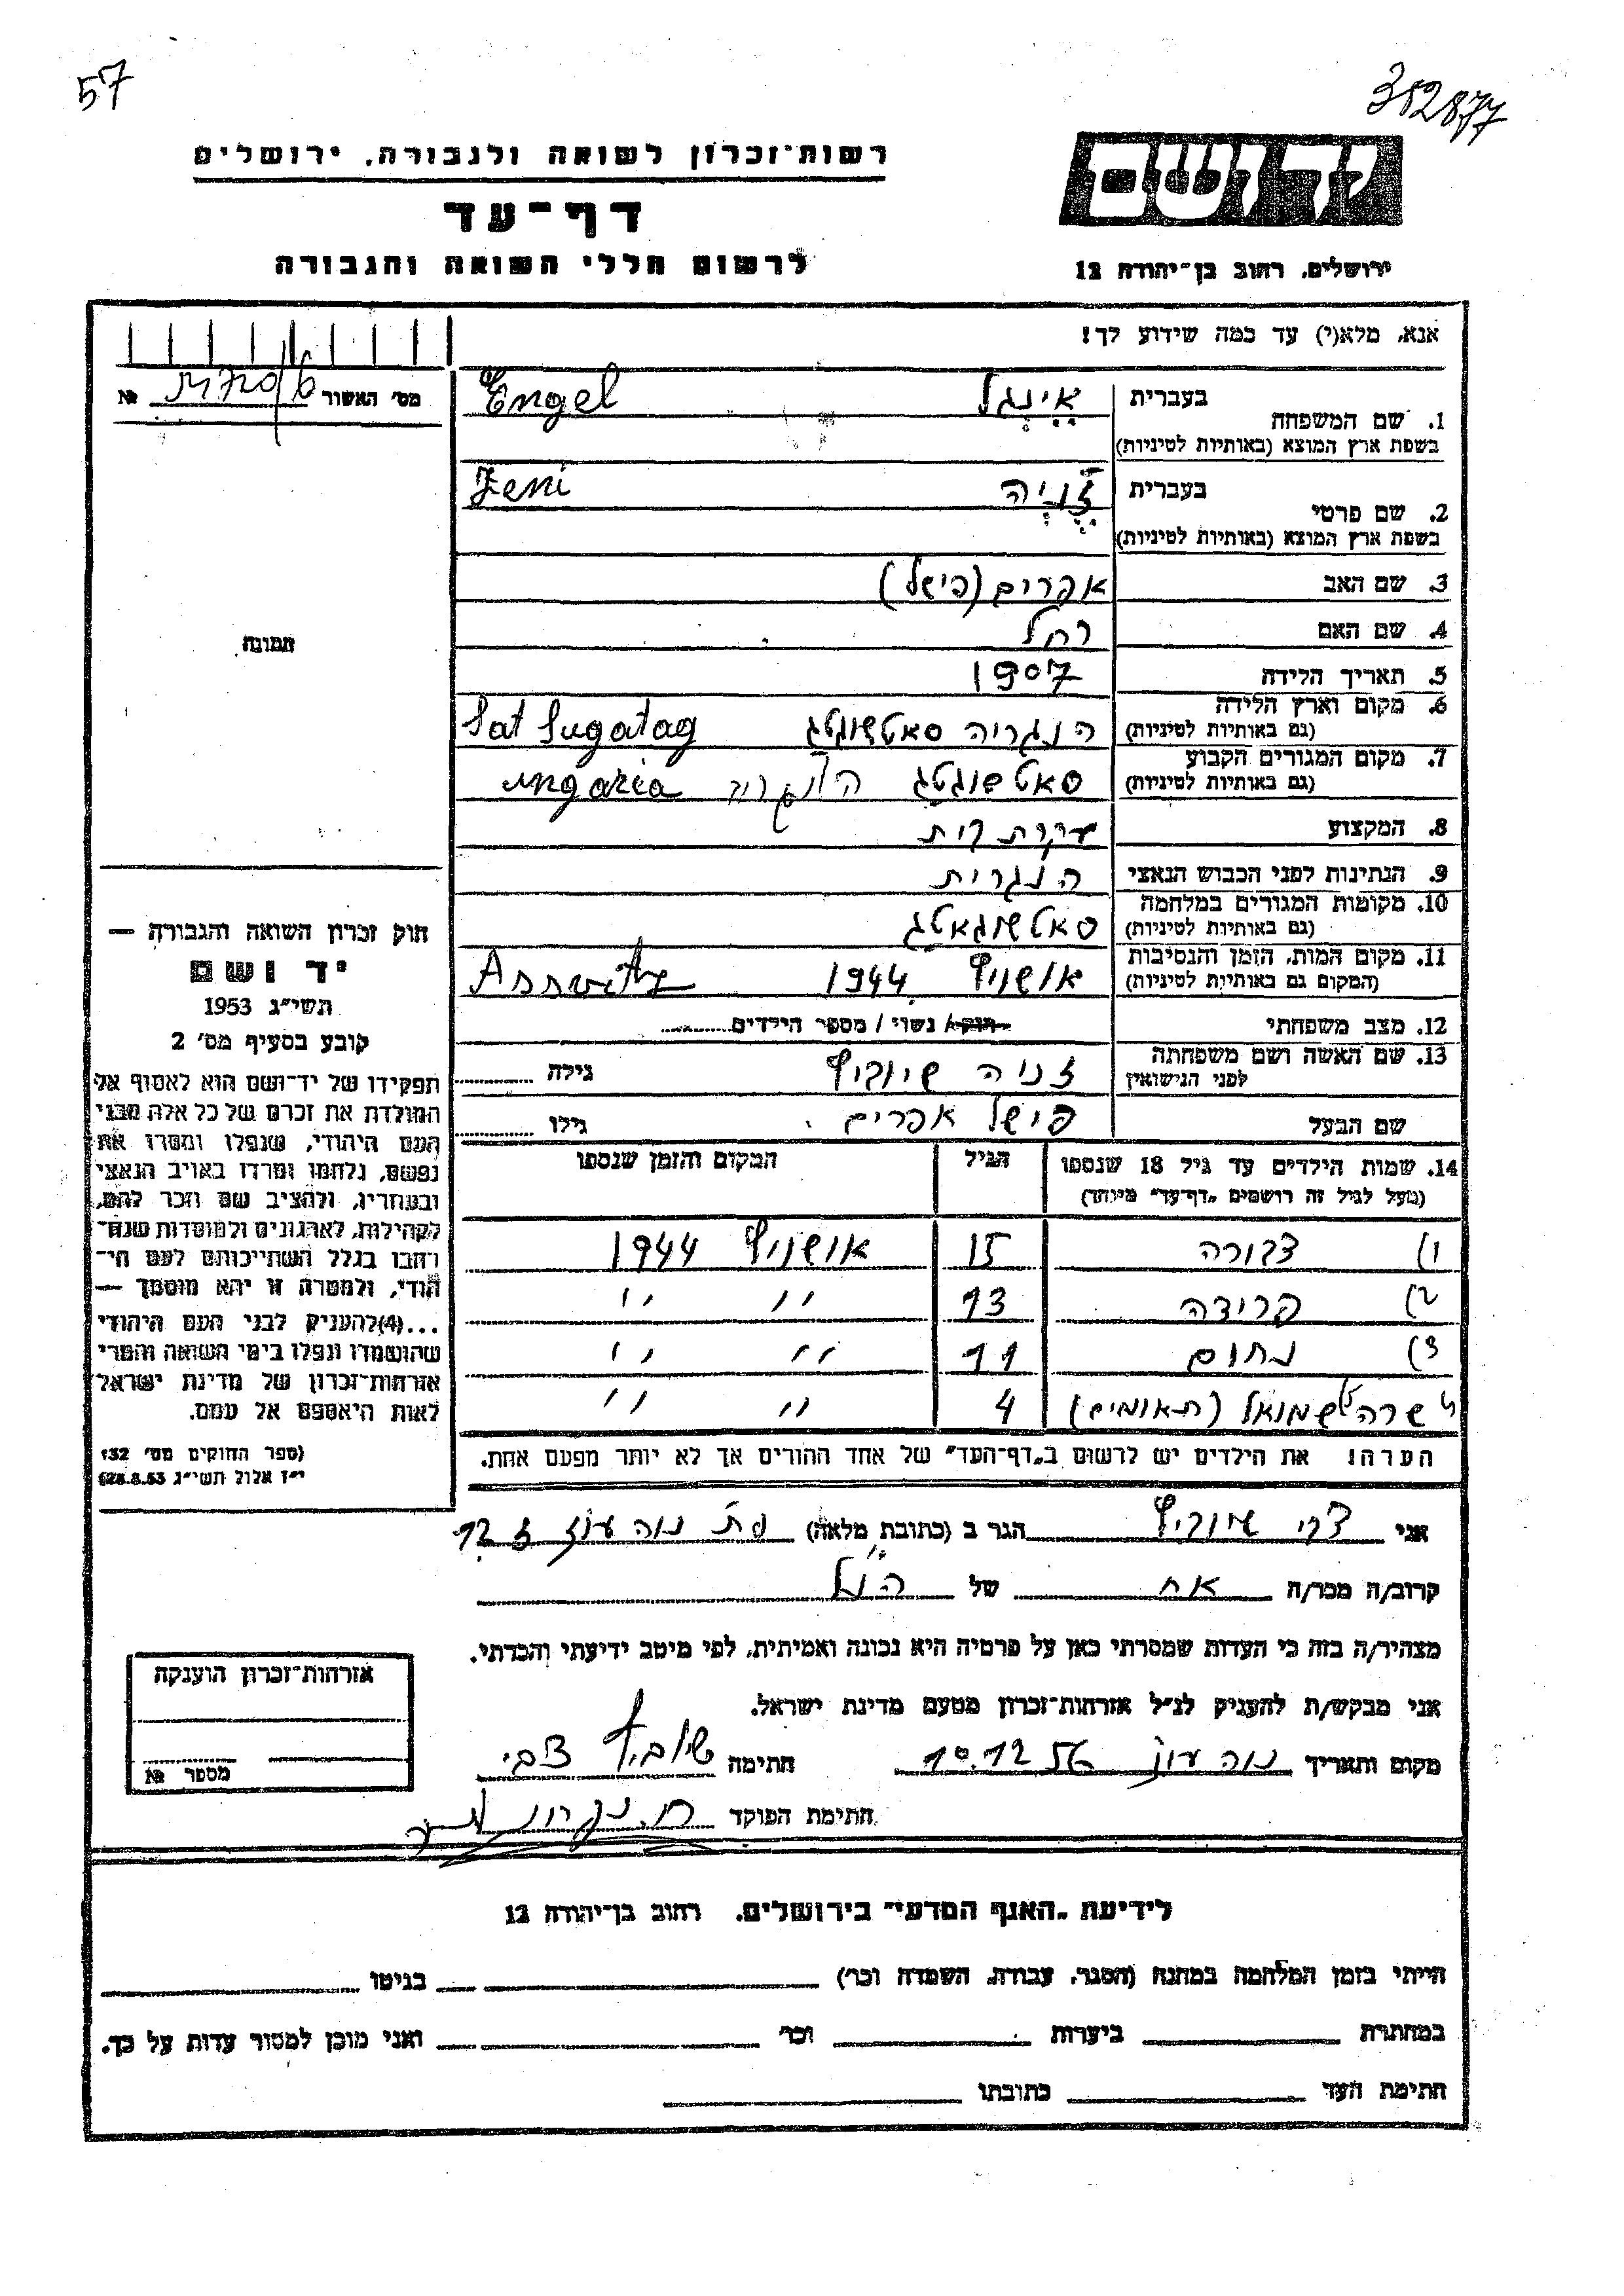 57
352877
רשות־זכרון לשואה ולגבורה, ירושלים
יד ושם
דף־עד
לרשום חללי השואה והגבורה
ירושלים, רחוב בן־יהודה 12
אנא, מלא(י) עד כמה שידוע לך!
מס׳ האשור №
1. שם המשפחה
בעברית אֵינְגֶל Engel
בשפת ארץ המוצא (באותיות לטיניות)
2. שם פרטי
בעברית זֶ׳נְיָה Zeni
בשפת ארץ המוצא (באותיות לטיניות)
3. שם האב אפרים (פישל)
4. שם האם רחל
5. תאריך הלידה 1907
6. מקום וארץ הלידה הנגריה סאטשוגטג Sat Sugatag
(גם באותיות לטיניות)
7. מקום המגורים הקבוע סאטשוגטג ungaria
(גם באותיות לטיניות)
8. המקצוע עקרת בית
9. הנתינות לפני הכבוש הנאצי הנגרית
10. מקומות המגורים במלחמה סאטשוגאטג
(גם באותיות לטיניות)
11. מקום המות, הזמן והנסיבות אושויץ 1944 Assvitz
(המקום גם באותיות לטיניות)
12. מצב משפחתי רווק/ נשוי / מספר הילדים
13. שם האשה ושם משפחתה זניה שיוביץ גילה
לפני הנישואין
שם הבעל פישל אפרים גילו
14. שמות הילדים עד גיל 18 שנספו הגיל המקום והזמן שנספו
(מעל לגיל זה רושמים „דף־עד״ מיוחד)
1) דבורה 15 אושויץ 1944
2) פרידה 13 〃 〃
3) נחום 11 〃 〃
שרה שמואל (תאומים) 4 〃 〃
הערה! את הילדים יש לרשום ב„דף־העד״ של אחד ההורים אך לא יותר מפעם אחת.
תמונה
חוק זכרון השואה והגבורה —
יד ושם
תשי״ג 1953
קובע בסעיף מס׳ 2
תפקידו של יד־ושם הוא לאסוף אל
המולדת את זכרם של כל אלה מבני
העם היהודי, שנפלו ומסרו את
נפשם, נלחמו ומרדו באויב הנאצי
ובעוזריו, ולהציב שם וזכר להם,
לקהילות, לארגונים ולמוסדות שנח־
רבו בגלל השתייכותם לעם הי־
הודי, ולמטרה זו יהא מוסמך —
...(4) להעניק לבני העם היהודי
שהושמדו ונפלו בימי השואה והמרי
אזרחות־זכרון של מדינת ישראל
לאות היאספם אל עמם.
(ספר החוקים מס׳ 132
י״ז אלול תשי״ג 28.8.53)
אני צבי שיוביץ הגר ב (כתובת מלאה) נוה עוז 12
קרוב/ה מכר/ה אח של הנ״ל
מצהיר/ה בזה כי העדות שמסרתי כאן על פרטיה היא נכונה ואמיתית, לפי מיטב ידיעתי והכרתי.
אני מבקש/ת להעניק לנ״ל אזרחות־זכרון מטעם מדינת ישראל.
מקום ותאריך נוה עוז 10.12.56 חתימה שיוביץ צבי
חתימת הפוקד
אזרחות־זכרון הוענקה
מספר №
לידיעת „האגף המדעי״ בירושלים, רחוב בן־יהודה 12
הייתי בזמן המלחמה במחנה (הסגר, עבודה, השמדה וכו׳) בגיטו
במחתרת ביערות וכו׳ ואני מוכן למסור עדות על כך.
חתימת העד כתובתו